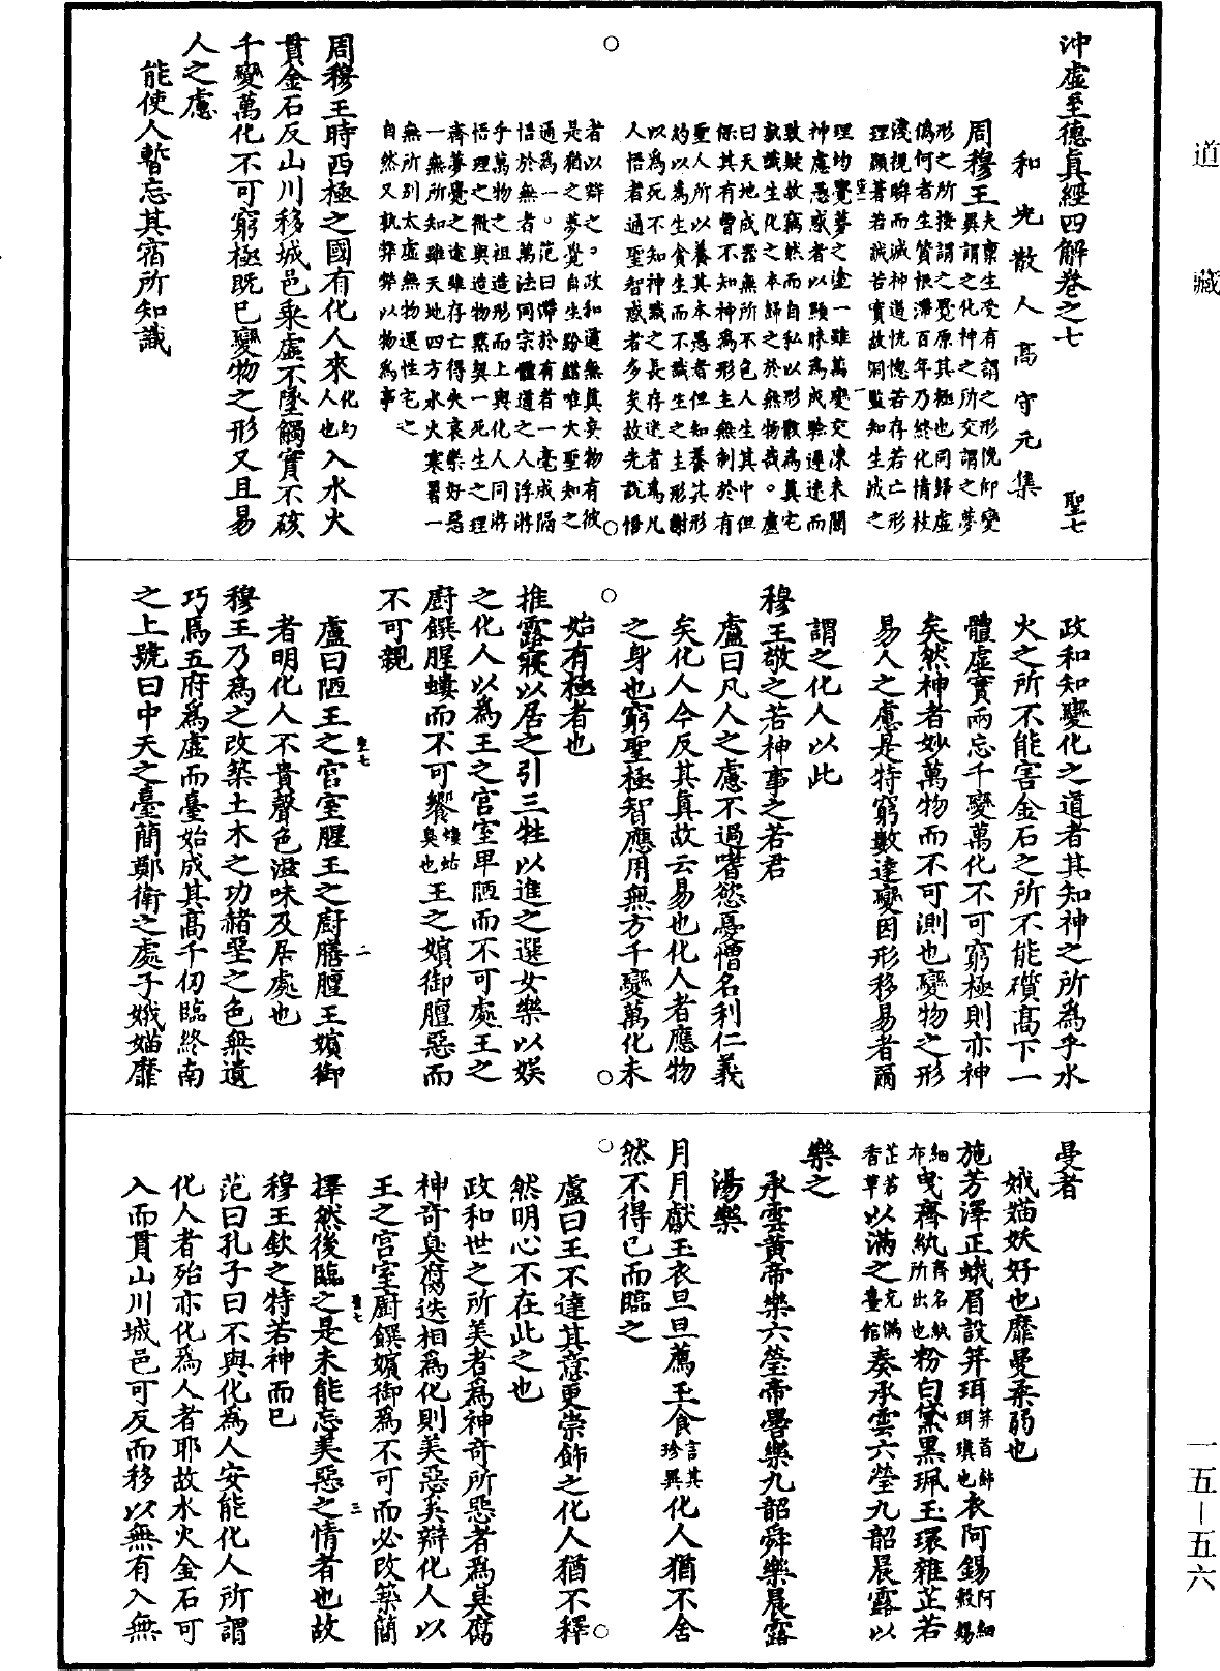 道藏
沖虛至德眞經四解卷之七　聖七
和光散人高守元集
周穆王夫稟生受有謂之形俛仰變
異謂之化神之所交謂之夢
形之所接謂之覺原其極也同歸虛
偽何者生質根滯百年乃終化情枝
淺視瞬而滅神道恍惚若存若亡形
理顯著若誠若實故洞監知生滅之
理均覺夢之塗一雖萬變交凍未關
神慮愚惑者以顯昧爲成驗遲速而
致疑故竊然而自私以形骸爲眞宅
孰識生化之本歸之於無物哉。盧
曰天地成器無所不包人生其中但
保其有曾不知神爲形主無制於有
聖人所以養其本愚者但知養其形
約以爲生食生而不識生之主形謝
以爲死不知神識之長存迷者爲凡
人悟者通聖智惑者多矣故先說悟
者以辯之。政和道無眞妄物有彼
是猶之夢覺自生紛錯唯大聖知之
通爲一。范曰滯於有者一毫成隔
悟於無者萬法同宗體道之人浮游
乎萬物之祖造形而上與化人同游
悟理之微與造物冥契一死生之理
齊夢覺之途雖存亡得失哀樂好惡
一無所知雖天地四方水火寒暑一
無所別太虛無物還性宅之
自然又孰弊弊以物爲事
周穆王時西極之國有化人來化幻人也入水火
貫金石反山川移城邑乘虛不墜觸實不硋
千變萬化不可窮極既已變物之形又且易
人之慮
能使人暫忘其宿所知識
政和知變化之道者其知神之所爲乎水
火之所不能害金石之所不能礩高下一
體虛實兩忘千變萬化不可窮極則亦神
矣然神者妙萬物而不可測也變物之形
易人之慮是特窮數達變因形移易者爾
謂之化人以此
穆王敬之若神事之若君
盧曰凡人之慮不過嗜慾憂憎名利仁義
矣化人今反其眞故云易也化人者應物
之身也窮聖極智應用無方千變萬化未
始有極者也
推露寢以居之引三牲以進之選女樂以娛
之化人以爲王之宮室卑陋而不可處王之
廚饌腥螻而不可饗螻蛄臭也王之嬪御膻惡而
不可親
盧曰陋王之宮室腥王之廚膳膻王嬪御
者明化人不貴聲色滋味及居處也
穆王乃爲之改築土木之功赭堊之色無遺
巧焉五府爲虛而臺始成其高千仞臨終南
之上號曰中天之臺簡鄭衛之處子娥媌靡
曼者
娥媌妖好也靡曼柔弱也
施芳澤正蛾眉設筓珥筓首飾珥瑱也衣阿錫阿細縠錫
細布曳齊紈齊名紈所出也粉白黛黑珮玉環雜芷若
芷若香草以滿之充滿臺館奏承雲六瑩九韶晨露以
樂之
承雲黃帝樂六瑩帝嚳樂九韶舜樂晨露
湯樂
月月獻玉衣旦旦薦玉食言其珍異化人猶不舍
然不得已而臨之
盧曰王不達其意更崇飾之化人猶不釋
然明心不在此之也
政和世之所美者爲神奇所惡者爲臭腐
神奇臭腐迭相爲化則美惡奚辯化人以
王之宮室廚饌嬪御爲不可而必改築簡
擇然後臨之是未能忘美惡之情者也故
穆王欽之特若神而已
范曰孔子曰不與化爲人安能化人所謂
化人者殆亦化爲人者耶故水火金石可
入而貫山川城邑可反而移以無有入無
聖七
一
聖七
二
聖七
三
一五—五六